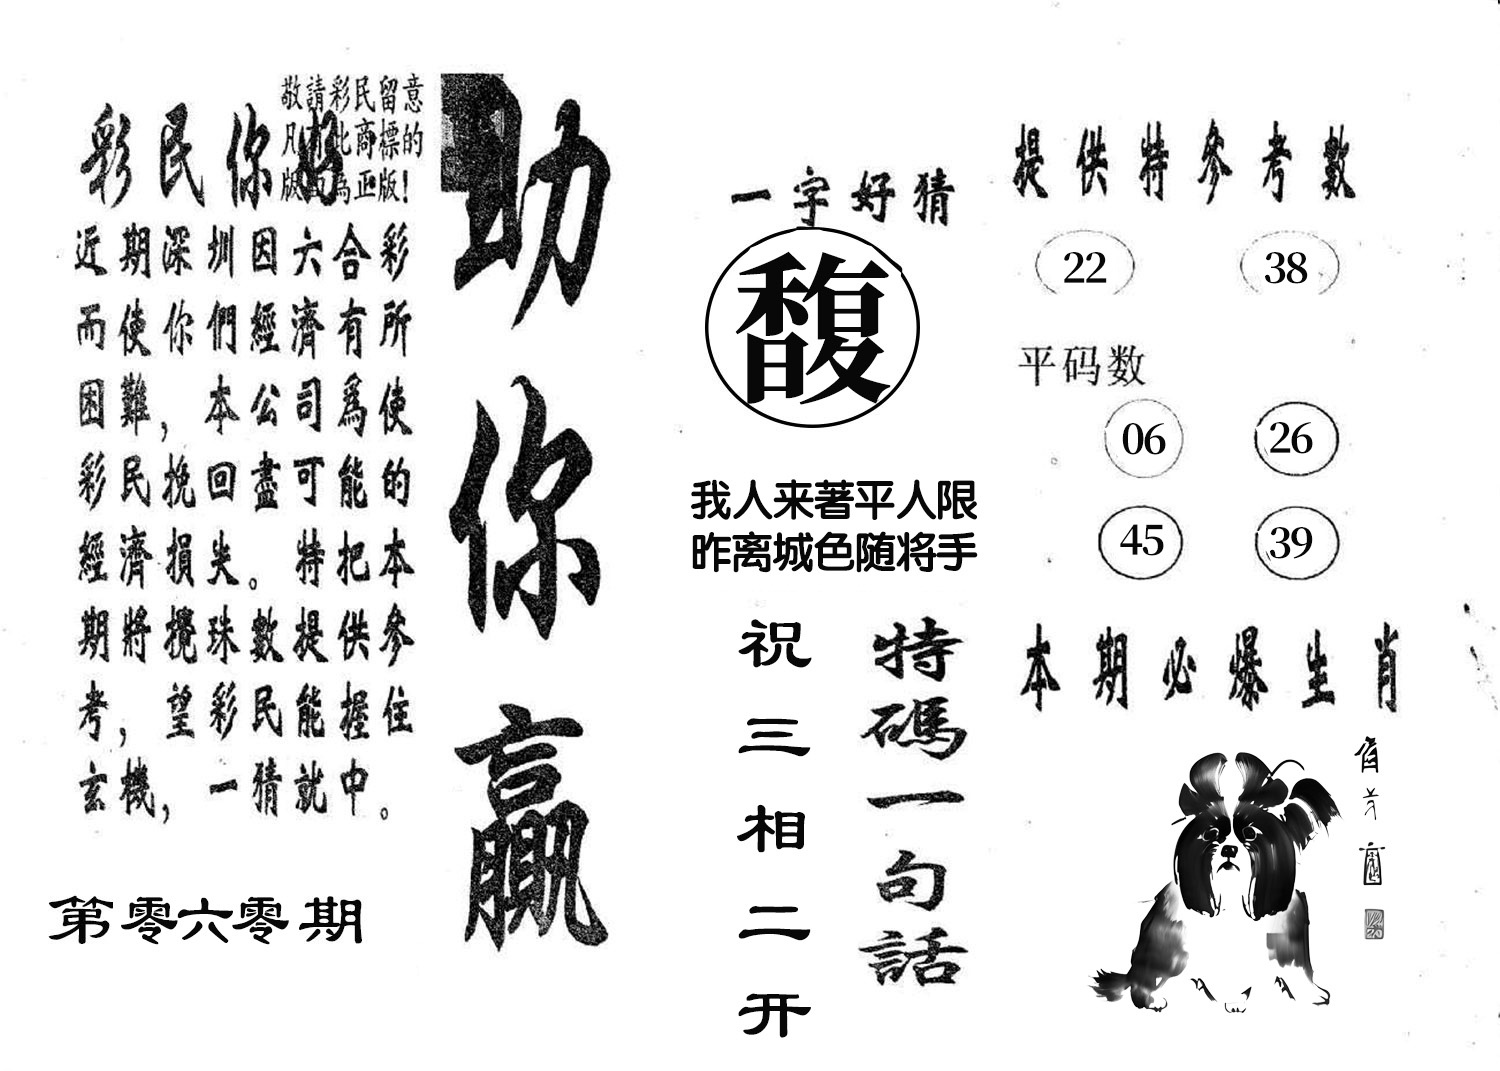 敬請彩民留意
凡有此商標的
版面為正版!
彩民你好
近期深圳因六合彩
而使你們經濟有所
困難，本公司爲使
彩民挽回盡可能的
經濟損失。特把本
期將攪珠數提供參
考，望彩民能握住
玄機，一猜就中。
第零六零期
助你赢
一字好猜
馥
我人来著平人限
昨离城色随将手
特碼一句話
祝三相二开
提供特參考數
22 38
平码数
06 26
45 39
本期必爆生肖